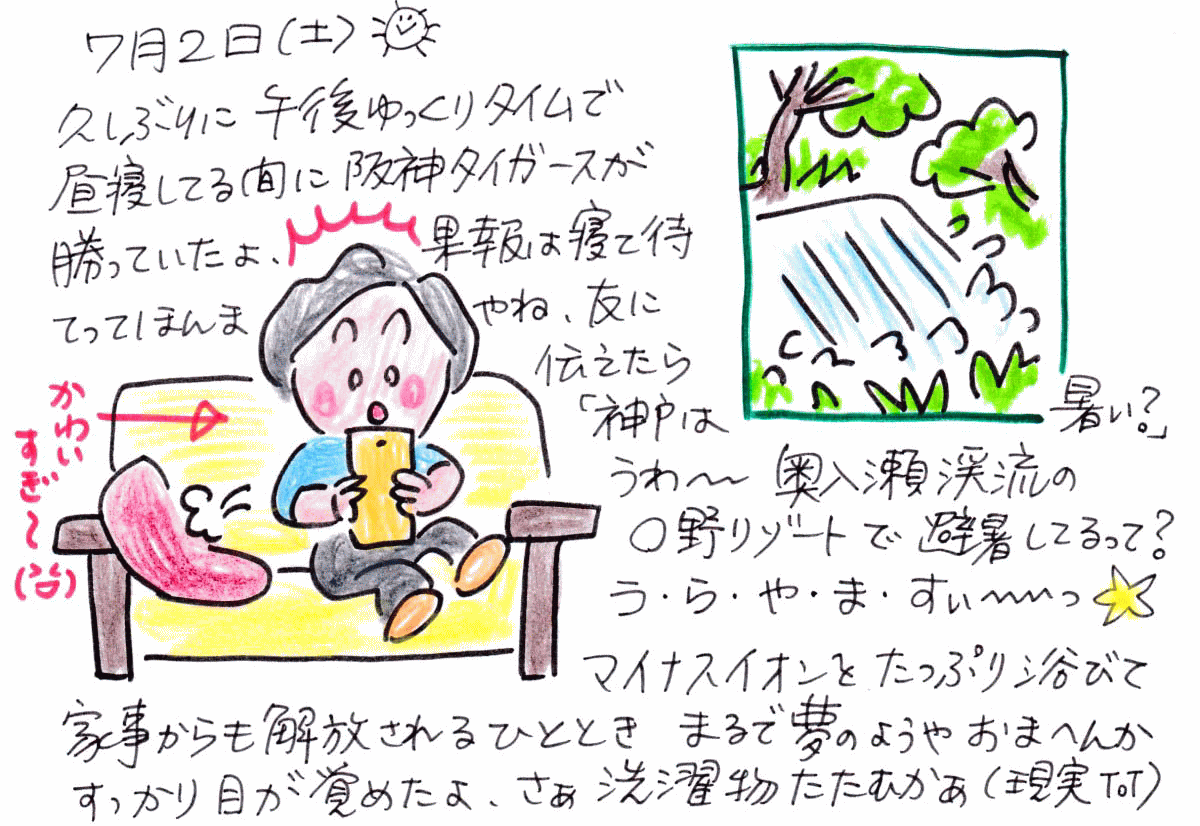 7月2日(土)
久しぶりに 午後ゆっくりタイムで
昼寝してる間に 阪神タイガースが
勝っていたよ、果報は寝て待
てってほんまやね、友に
伝えたら
「神戸は暑い?」
うわ〜〜 奥入瀬渓流の
○野リゾートで避暑してるって?
う・ら・や・ま・すぃ〜〜〜っ
マイナスイオンを たっぷり浴びて
家事からも解放されるひととき まるで夢のようや おまへんか
すっかり目が覚めたよ、さぁ 洗濯物たたむかぁ(現実ToT)
かわい
すぎ〜
(笑)